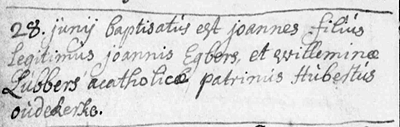 28. junij baptisatus est joannes filius
legitimus joannis Egbers, et willeminæ
Lubbers acatholicæ, patrinus Hubertus
oudekerke.